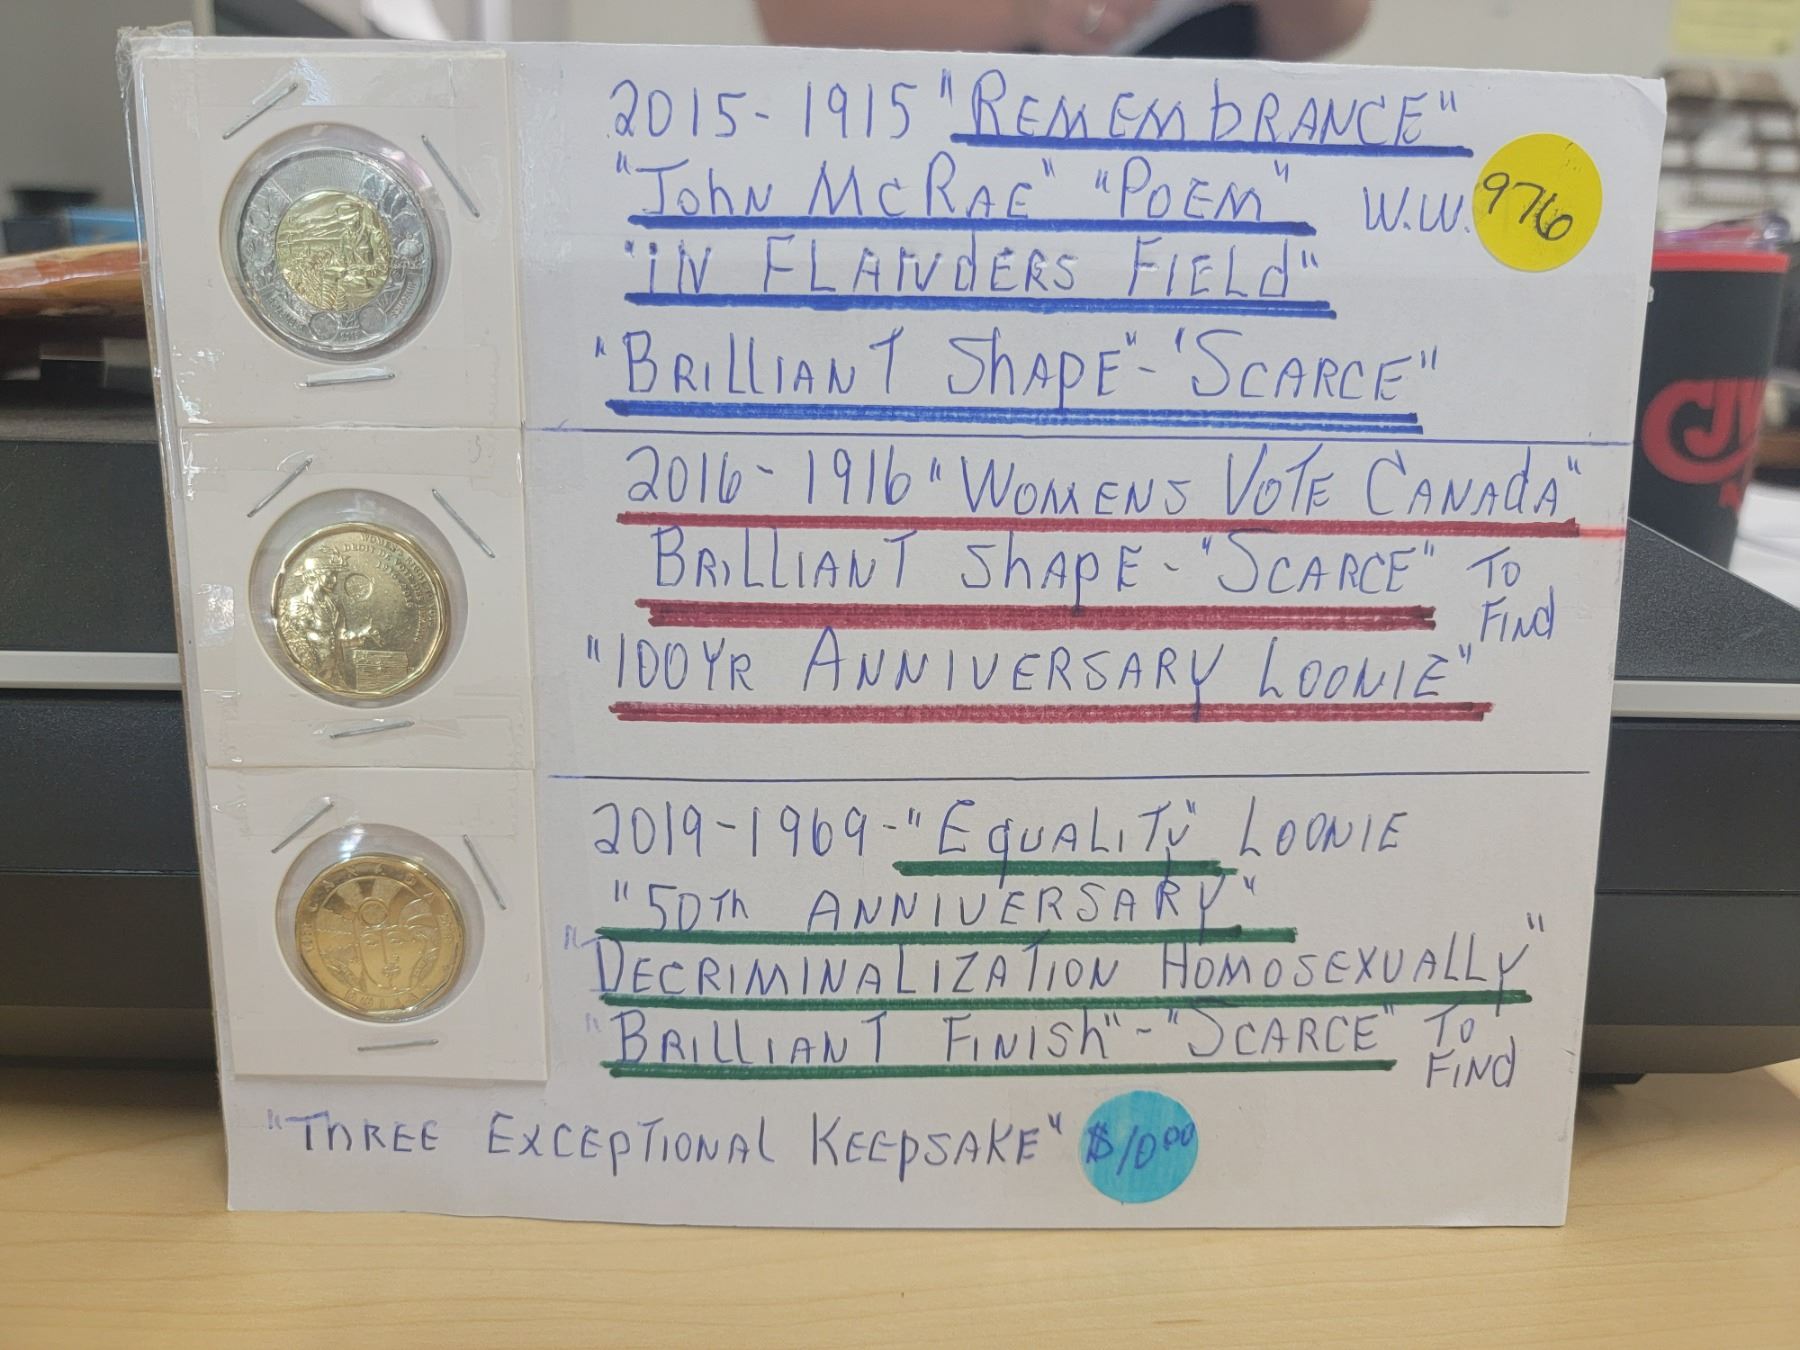 2015-1915 "REMEMbRANCE"
"JOhN McRAE" "POEM" W.W.
9776
"iN FLANdERS FIELd"
"BRILLIANT ShAPE"-"SCARCE"
2016-1916 "WOMENS VOTE CANAdA"
BRILLIANT ShAPE-"SCARCE" TO
FINd
"100YR ANNIVERSARY LOONIE"
2019-1969-"EQUALITY" LOONIE
"50Th ANNIVERSARY"
"DECRIMINALIZATION HOMOSEXUALLY"
"BRILLIANT FINISh"-"SCARCE" TO
FINd
"ThREE EXCEPTIONAL KEEPSAKE" $10.00
CANADA